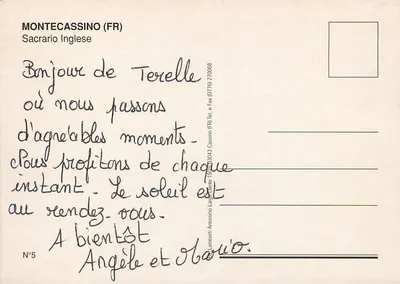 MONTECASSINO (FR)
Sacrario Inglese
Bonjour de Terelle
où nous passons
d'agréables moments.
Nous profitons de chaque
instant. Le soleil est
au rendez-vous.
A bientôt
Angèle et Mario.
N°5
Cassino (FR) Tel. e Fax (0776) 270068